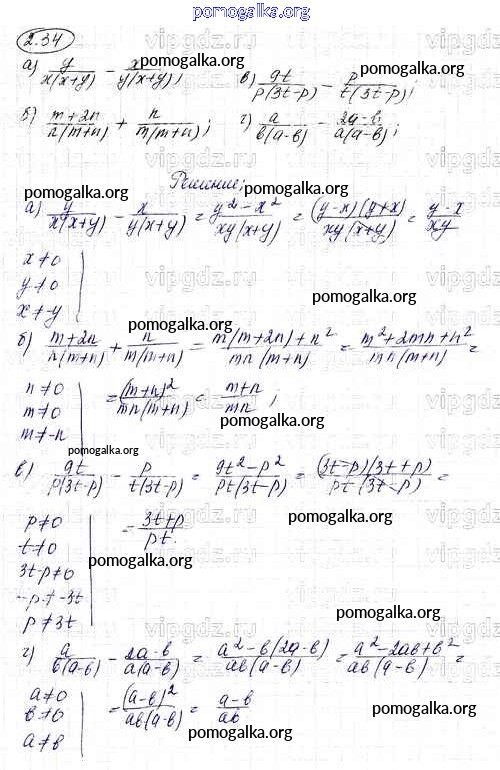 pomogalka.org
2.34
а) y/(x(x+y)) - x/(y(x+y)); в) 9t/(p(3t-p)) - p/(t(3t-p));
б) (m+2n)/(n(m+n)) + n/(m(m+n)); г) a/(b(a-b)) - (2a-b)/(a(a-b));
Решение;
pomogalka.org pomogalka.org
а) y/(x(x+y)) - x/(y(x+y)) = (y²-x²)/(xy(x+y)) = ((y-x)(y+x))/(xy(x+y)) = (y-x)/(xy)
x≠0
y≠0
x≠-y
pomogalka.org
б) (m+2n)/(n(m+n)) + n/(m(m+n)) = (m(m+2n)+n²)/(mn(m+n)) = (m²+2mn+n²)/(mn(m+n)) =
n≠0
m≠0
m≠-n
= (m+n)²/(mn(m+n)) = (m+n)/(mn);
pomogalka.org
pomogalka.org
в) 9t/(p(3t-p)) - p/(t(3t-p)) = (9t²-p²)/(pt(3t-p)) = ((3t-p)(3t+p))/(pt(3t-p)) =
p≠0
t≠0
3t-p≠0
-p≠-3t
p≠3t
= (3t+p)/(pt).
pomogalka.org
pomogalka.org
pomogalka.org
г) a/(b(a-b)) - (2a-b)/(a(a-b)) = (a²-b(2a-b))/(ab(a-b)) = (a²-2ab+b²)/(ab(a-b)) =
a≠0
b≠0
a≠b
= (a-b)²/(ab(a-b)) = (a-b)/(ab)
pomogalka.org
pomogalka.org